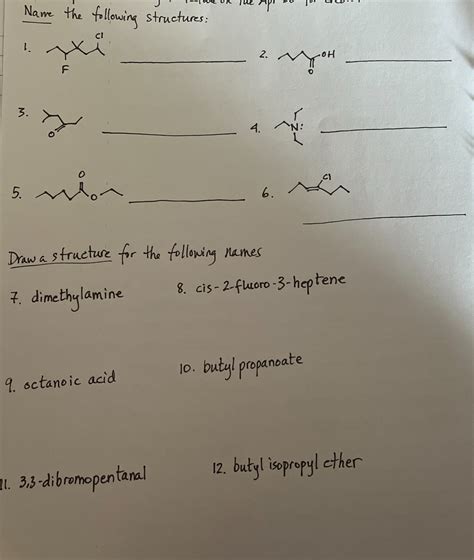 Name the following structures:
Cl
1.
F
2.
OH
O
3.
O
4.
N:
5.
O
O
6.
Cl
Draw a structure for the following names
7. dimethylamine
8. cis-2-fluoro-3-heptene
9. octanoic acid
10. butyl propanoate
11. 3,3-dibromopentanal
12. butyl isopropyl ether